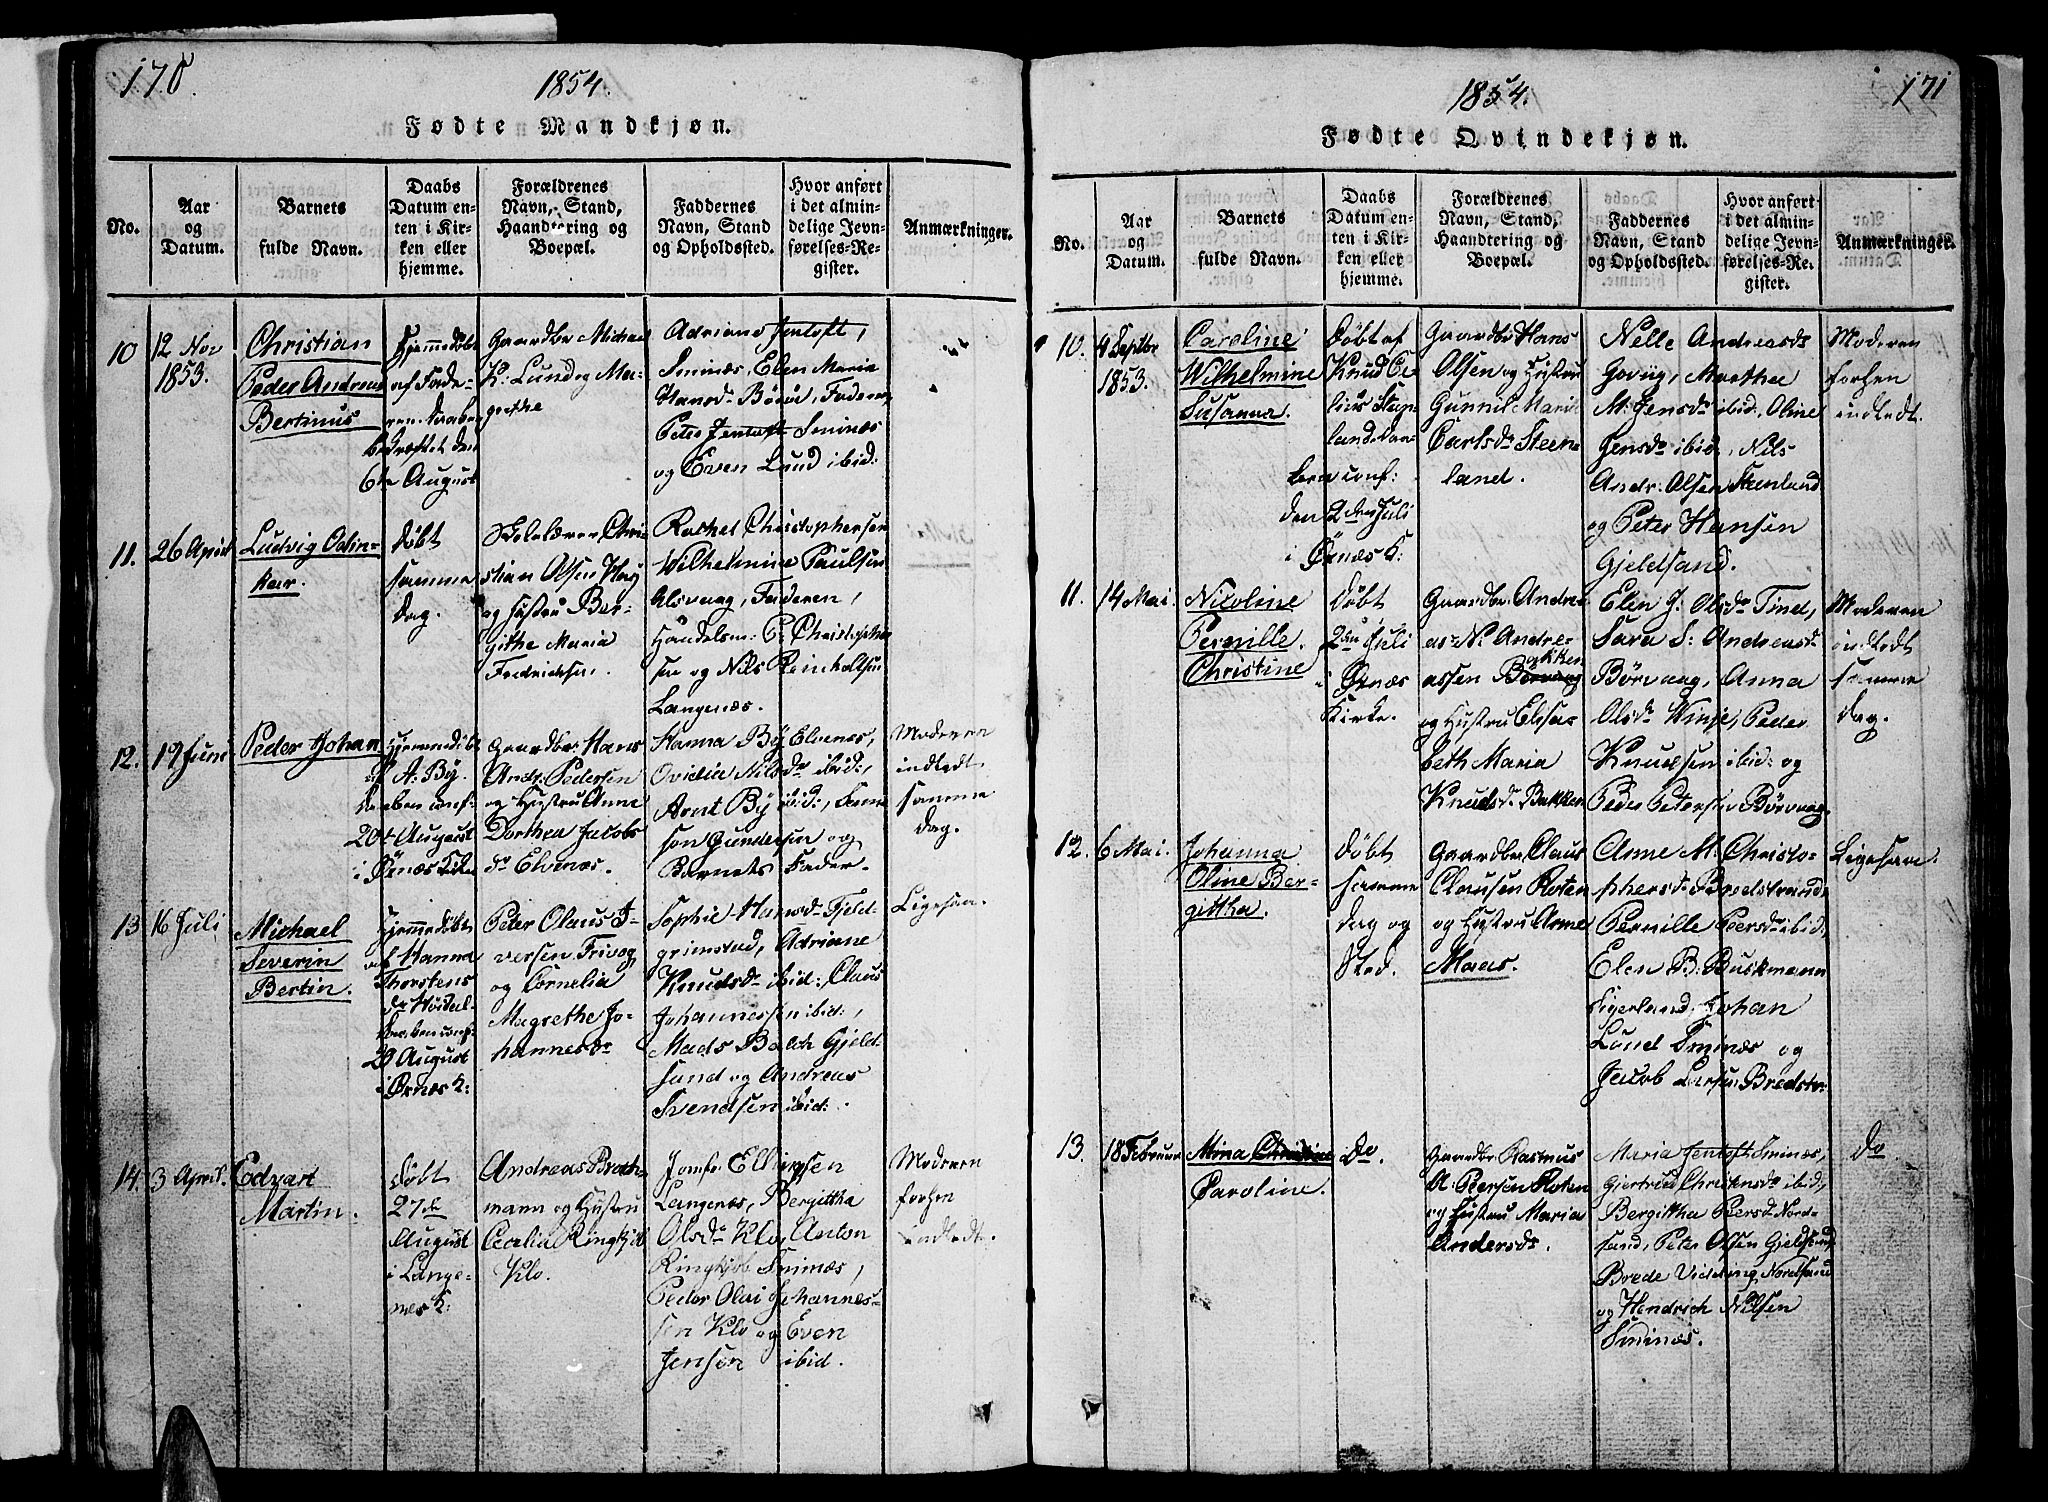 170.
1854.
Fødte Mandkjøn.
No.
Aar
og
Datum.
Barnets
fulde Navn.
Daabs
Datum en-
ten i Kir-
ken eller
hjemme.
Forældrenes
Navn, Stand,
Haandtering og
Boepæl.
Faddernes
Navn, Stand
og Opholdssted.
Hvor anført
i det almin-
delige Jevn-
førelses-Re-
gister.
Anmærkninger.
10
12 Nov
1853.
Christian
Peder Andreas
Bertinus
Hjemmedøbt
af Fade-
ren. Daaben
bekræftet den
6te August
Gaardbr Michael
K. Lund og Ma-
grethe
Adriane Jentoft,
Sminæs, Elen Maria
Hansd. Børøe, Faderen,
Peter Jentoft Sminæs
og Even Lund ibid:
11.
26 April
Ludvig Odin-
kar.
Døbt
samme
dag.
Skolelærer Chri-
stian Olsen Høy
og Hustru Ber-
githe Maria
Fredriksen.
Rachel Christophersen
Wilhelmine Paulsen
Alsvaag, Faderen,
Handelsm: C. Christopher-
sen og Nils Reinholtsen
Langenæs.
12.
19 Juni
Peder Johan
Hjemmedøbt
af A. By.
Daaben conf.
20de August
i Øxnæs Kirke
Gaardbr. Hans
Andr. Pedersen
og Hustru Anne
Dorthea Jacobs
dr Elvenæs.
Hanna By Elvenæs,
Ovidia Nilsdr ibid:,
Arnt By ibid:,
son Gundersen og
Barnets Fader.
Moderen
indledt
samme
dag.
13
16 Juli
Michael
Severin
Bertin.
Hjemmedøbt
af Hanna
Thorstens
dr
Daaben conf.
20 August
i Øxnæs K:
Peter Olaus I-
versen Frivog
og Cornelia
Magrethe Jo-
hannesdr
Sophie Hansdr Fjeld-
grimstad, Adriane
Knudsdr ibid: Claus
Johannessen ibid:,
Mads Balch Gjeld-
sand og Andreas
Svendsen ibid:.
Ligesaa.
14.
3 April.
Edvart
Martin.
Døbt
27de
August
i Lange-
næs K:
Andreas Brath-
mann og Hustru
Cecilia Ringkjøb
Klo.
Jomfr Ellingsen
Langenæs, Bergittha
Olsdr Klo, Anton
Ringkjøb Sminæs,
Peder Olai Johannes-
sen Klo og Even
Jensen ibid.
Moderen
forhen
indledt.
171
1854.
Fødte Qvindekjøn.
No.
Aar
og
Datum.
Barnets
fulde Navn.
Daabs
Datum en-
ten i Kir-
ken eller
hjemme.
Forældrenes
Navn, Stand,
Haandtering og
Boepæl.
Faddernes
Navn, Stand
og Opholdssted.
Hvor anført
i det almin-
delige Jevn-
førelses-Re-
gister.
Anmærkninger.
10.
4 Septbr
1853.
Caroline
Wilhelmine
Susanna.
Døbt af
Knud Ce-
lius
land. Daa-
ben conf:
den 2den Juli
i Øxnæs K:
Gaardbr Hans
Olsen og Hustru
Gunnil Marie
Carlsdr Steen-
land.
Nelle Andreasdr
Goviig, Marthea
M. Jensdr ibid:, Oline
Jensdr ibid, Nils
Andr. Olsen Steenland
og Peter Hansen
Gjeldsand.
Moderen
forhen
indledt.
11.
14 Mai.
Nicoline
Pernille
Christine
Døbt
2den Juli
i Øxnæs
Kirke.
Gaardbr. Andre-
as N. Andre-
assen Børvaag
Bakken
og Hustru Elisa-
beth Maria
Knudsdr Bakken
Elen J. Olsdr Tind,
Sara S. Andreasdr
Børvaag, Anna
Olsdr Vinje, Peder
Knudsen ibid: og
Peder Petersen Børvaag.
Moderen
indledt
samme
dag.
12.
6 Mai.
Johanna
Oline Ber-
gittha.
Døbt
samme
dag og
Sted.
Gaardbr. Claus
Clausen Roten
og Hustru Anne
Maas.
Anne M. Christo-
phersdr Bredstrand,
Pernille Peersdr ibid:,
Elen B. Buskmann
Tigerland, Johan
Lund Sminæs og
Jacob Larsen Bredstr.
Ligesaa.
13.
18 Februar
Mina Christine
Caroline.
Do.
Gaardbr Rasmus
A. Peersen Roten
og Hustru Maria
Andersdr.
Maria Jentoft Sminæs,
Gjertrud Christensdr ibid;
Bergittha Peersdr Nord-
sand, Peter Olsen Gjeldsand
Brede Vidding Nordsand
og Hendrich Nilsen
Sminæs.
Do